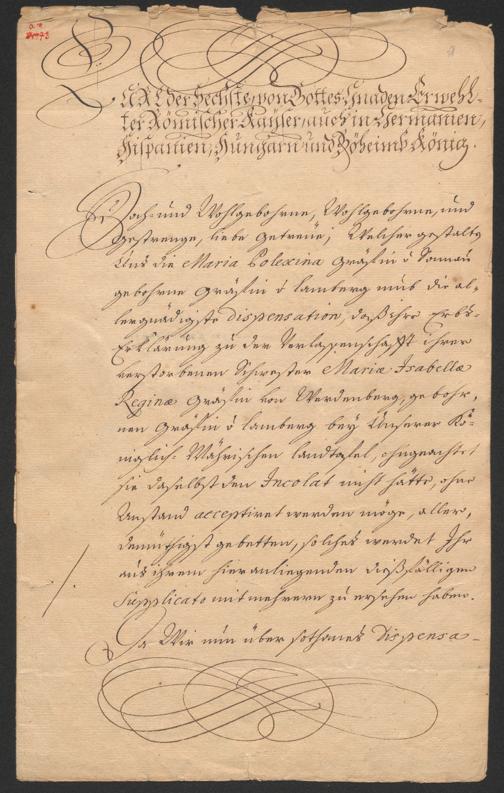 CARL der Sechste, von Gottes Gnaden Erwehl-
ter Römischer Kayser, auch in Germanien,
Hispanien, Hungarn und Böheimb König.
Hoch- und Wohlgebohrne, Wohlgebohrne, und
Gestrenge, liebe Getreüe; Welchergestalt
Uns die Maria Polexina Gräfin v
gebohrne Gräfin v lamberg umb die al-
lergnädigste dispensation, daß ihre erbs-
Erklärung zu der Verlassenschafft ihrer
verstorbenen Schwester Mariæ Isabellæ
Reginæ Gräfin von Werdenberg, gebohr-
nen Gräfin v lamberg bey Unserer Kö-
niglich-Mährischen landtafel, ohngeachtet
sie daselbst den Incolat nicht hätte, ohne
Anstand acceptiret werden möge, aller-
demüthigst gebetten, solches werdet Ihr
aus ihrem hieranliegenden dießfälligen
Supplicato mit mehrern zu ersehen haben.
Da Wir nun über sothanes Dispensa-